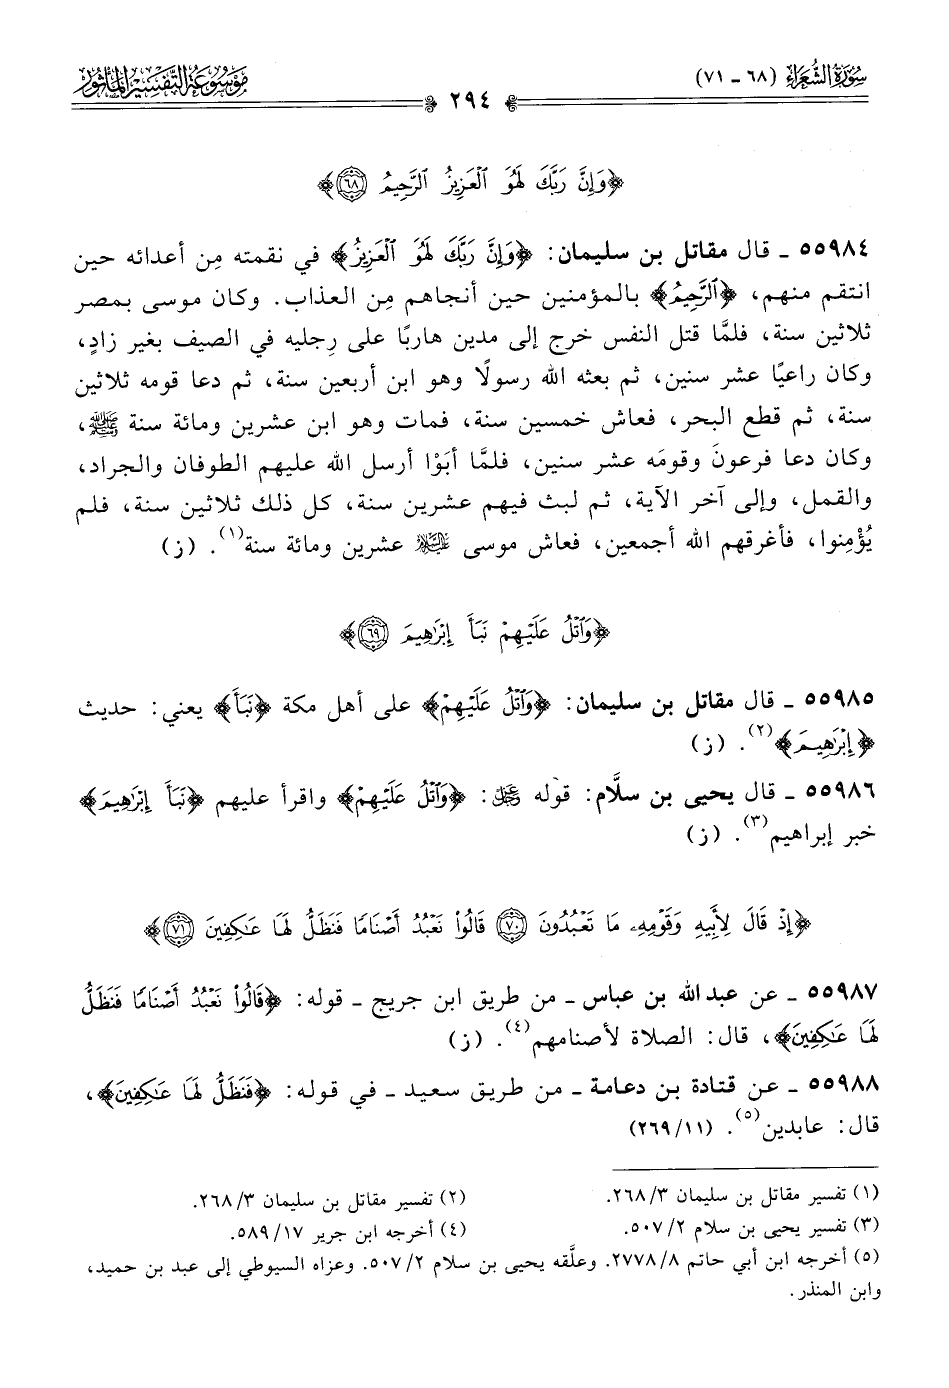 سُورَةُ الشُّعَرَاءِ (٦٨ - ٧١)
٢٩٤
مَوْسُوعَةُ التَّفْسِيرِ المَأْثُور
﴿وَإِنَّ رَبَّكَ لَهُوَ ٱلْعَزِيزُ ٱلرَّحِيمُ ٦٨﴾
٥٥٩٨٤ - قال مقاتل بن سليمان: ﴿وَإِنَّ رَبَّكَ لَهُوَ ٱلْعَزِيزُ﴾ في نقمته مِن أعدائه حين
انتقم منهم، ﴿ٱلرَّحِيمُ﴾ بالمؤمنين حين أنجاهم مِن العذاب. وكان موسى بمصر
ثلاثين سنة، فلمَّا قتل النفس خرج إلى مدين هاربًا على رِجليه في الصيف بغير زادٍ،
وكان راعيًا عشر سنين، ثم بعثه الله رسولًا وهو ابن أربعين سنة، ثم دعا قومه ثلاثين
سنة، ثم قطع البحر، فعاش خمسين سنة، فمات وهو ابن عشرين ومائة سنة ﷺ،
وكان دعا فرعونَ وقومَه عشر سنين، فلمَّا أبَوْا أرسل الله عليهم الطوفان والجراد،
والقمل، وإلى آخر الآية، ثم لبث فيهم عشرين سنة، كل ذلك ثلاثين سنة، فلم
يُؤْمِنوا، فأغرقهم الله أجمعين، فعاش موسى عليه السلام عشرين ومائة سنة(١). (ز)
﴿وَٱتْلُ عَلَيْهِمْ نَبَأَ إِبْرَٰهِيمَ ٦٩﴾
٥٥٩٨٥ - قال مقاتل بن سليمان: ﴿وَٱتْلُ عَلَيْهِمْ﴾ على أهل مكة ﴿نَبَأَ﴾ يعني: حديث
﴿إِبْرَٰهِيمَ﴾(٢). (ز)
٥٥٩٨٦ - قال يحيى بن سلَّام: قوله عز وجل: ﴿وَٱتْلُ عَلَيْهِمْ﴾ واقرأ عليهم ﴿نَبَأَ إِبْرَٰهِيمَ﴾
خبر إبراهيم(٣). (ز)
﴿إِذْ قَالَ لِأَبِيهِ وَقَوْمِهِۦ مَا تَعْبُدُونَ ٧٠ قَالُوا۟ نَعْبُدُ أَصْنَامًا فَنَظَلُّ لَهَا عَٰكِفِينَ ٧١﴾
٥٥٩٨٧ - عن عبد الله بن عباس - من طريق ابن جريج - قوله: ﴿قَالُوا۟ نَعْبُدُ أَصْنَامًا فَنَظَلُّ
لَهَا عَٰكِفِينَ﴾، قال: الصلاة لأصنامهم(٤). (ز)
٥٥٩٨٨ - عن قتادة بن دعامة - من طريق سعيد - في قوله: ﴿فَنَظَلُّ لَهَا عَٰكِفِينَ﴾،
قال: عابدين(٥). (٢٦٩/١١)
(١) تفسير مقاتل بن سليمان ٢٦٨/٣.
(٢) تفسير مقاتل بن سليمان ٢٦٨/٣.
(٣) تفسير يحيى بن سلام ٥٠٧/٢.
(٤) أخرجه ابن جرير ٥٨٩/١٧.
(٥) أخرجه ابن أبي حاتم ٢٧٧٨/٨. وعلَّقه يحيى بن سلام ٥٠٧/٢. وعزاه السيوطي إلى عبد بن حميد،
وابن المنذر.